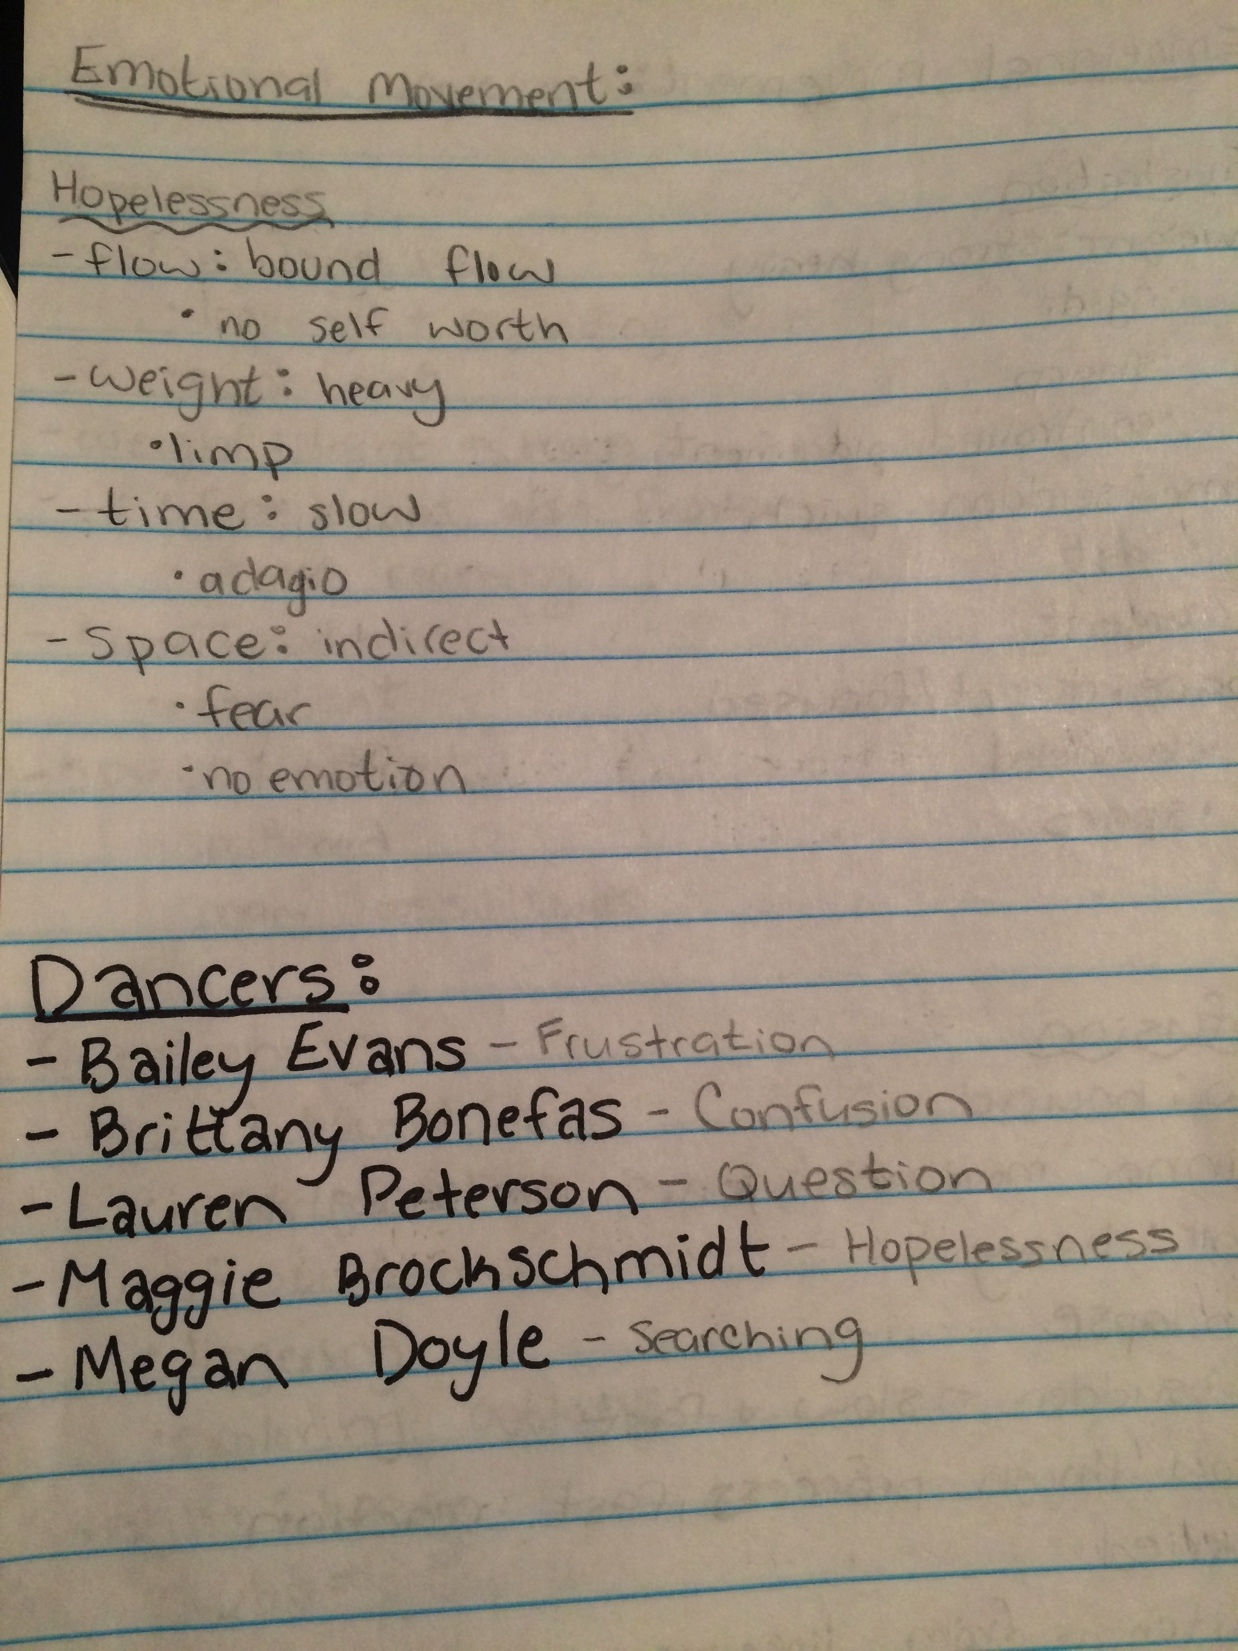 Emotional Movement:
Hopelessness
- flow: bound flow
• no self worth
- weight: heavy
• limp
- time: slow
• adagio
- space: indirect
• fear
• no emotion
Dancers:
- Bailey Evans - Frustration
- Brittany Bonefas - Confusion
- Lauren Peterson - Question
- Maggie Brockschmidt - Hopelessness
- Megan Doyle - Searching